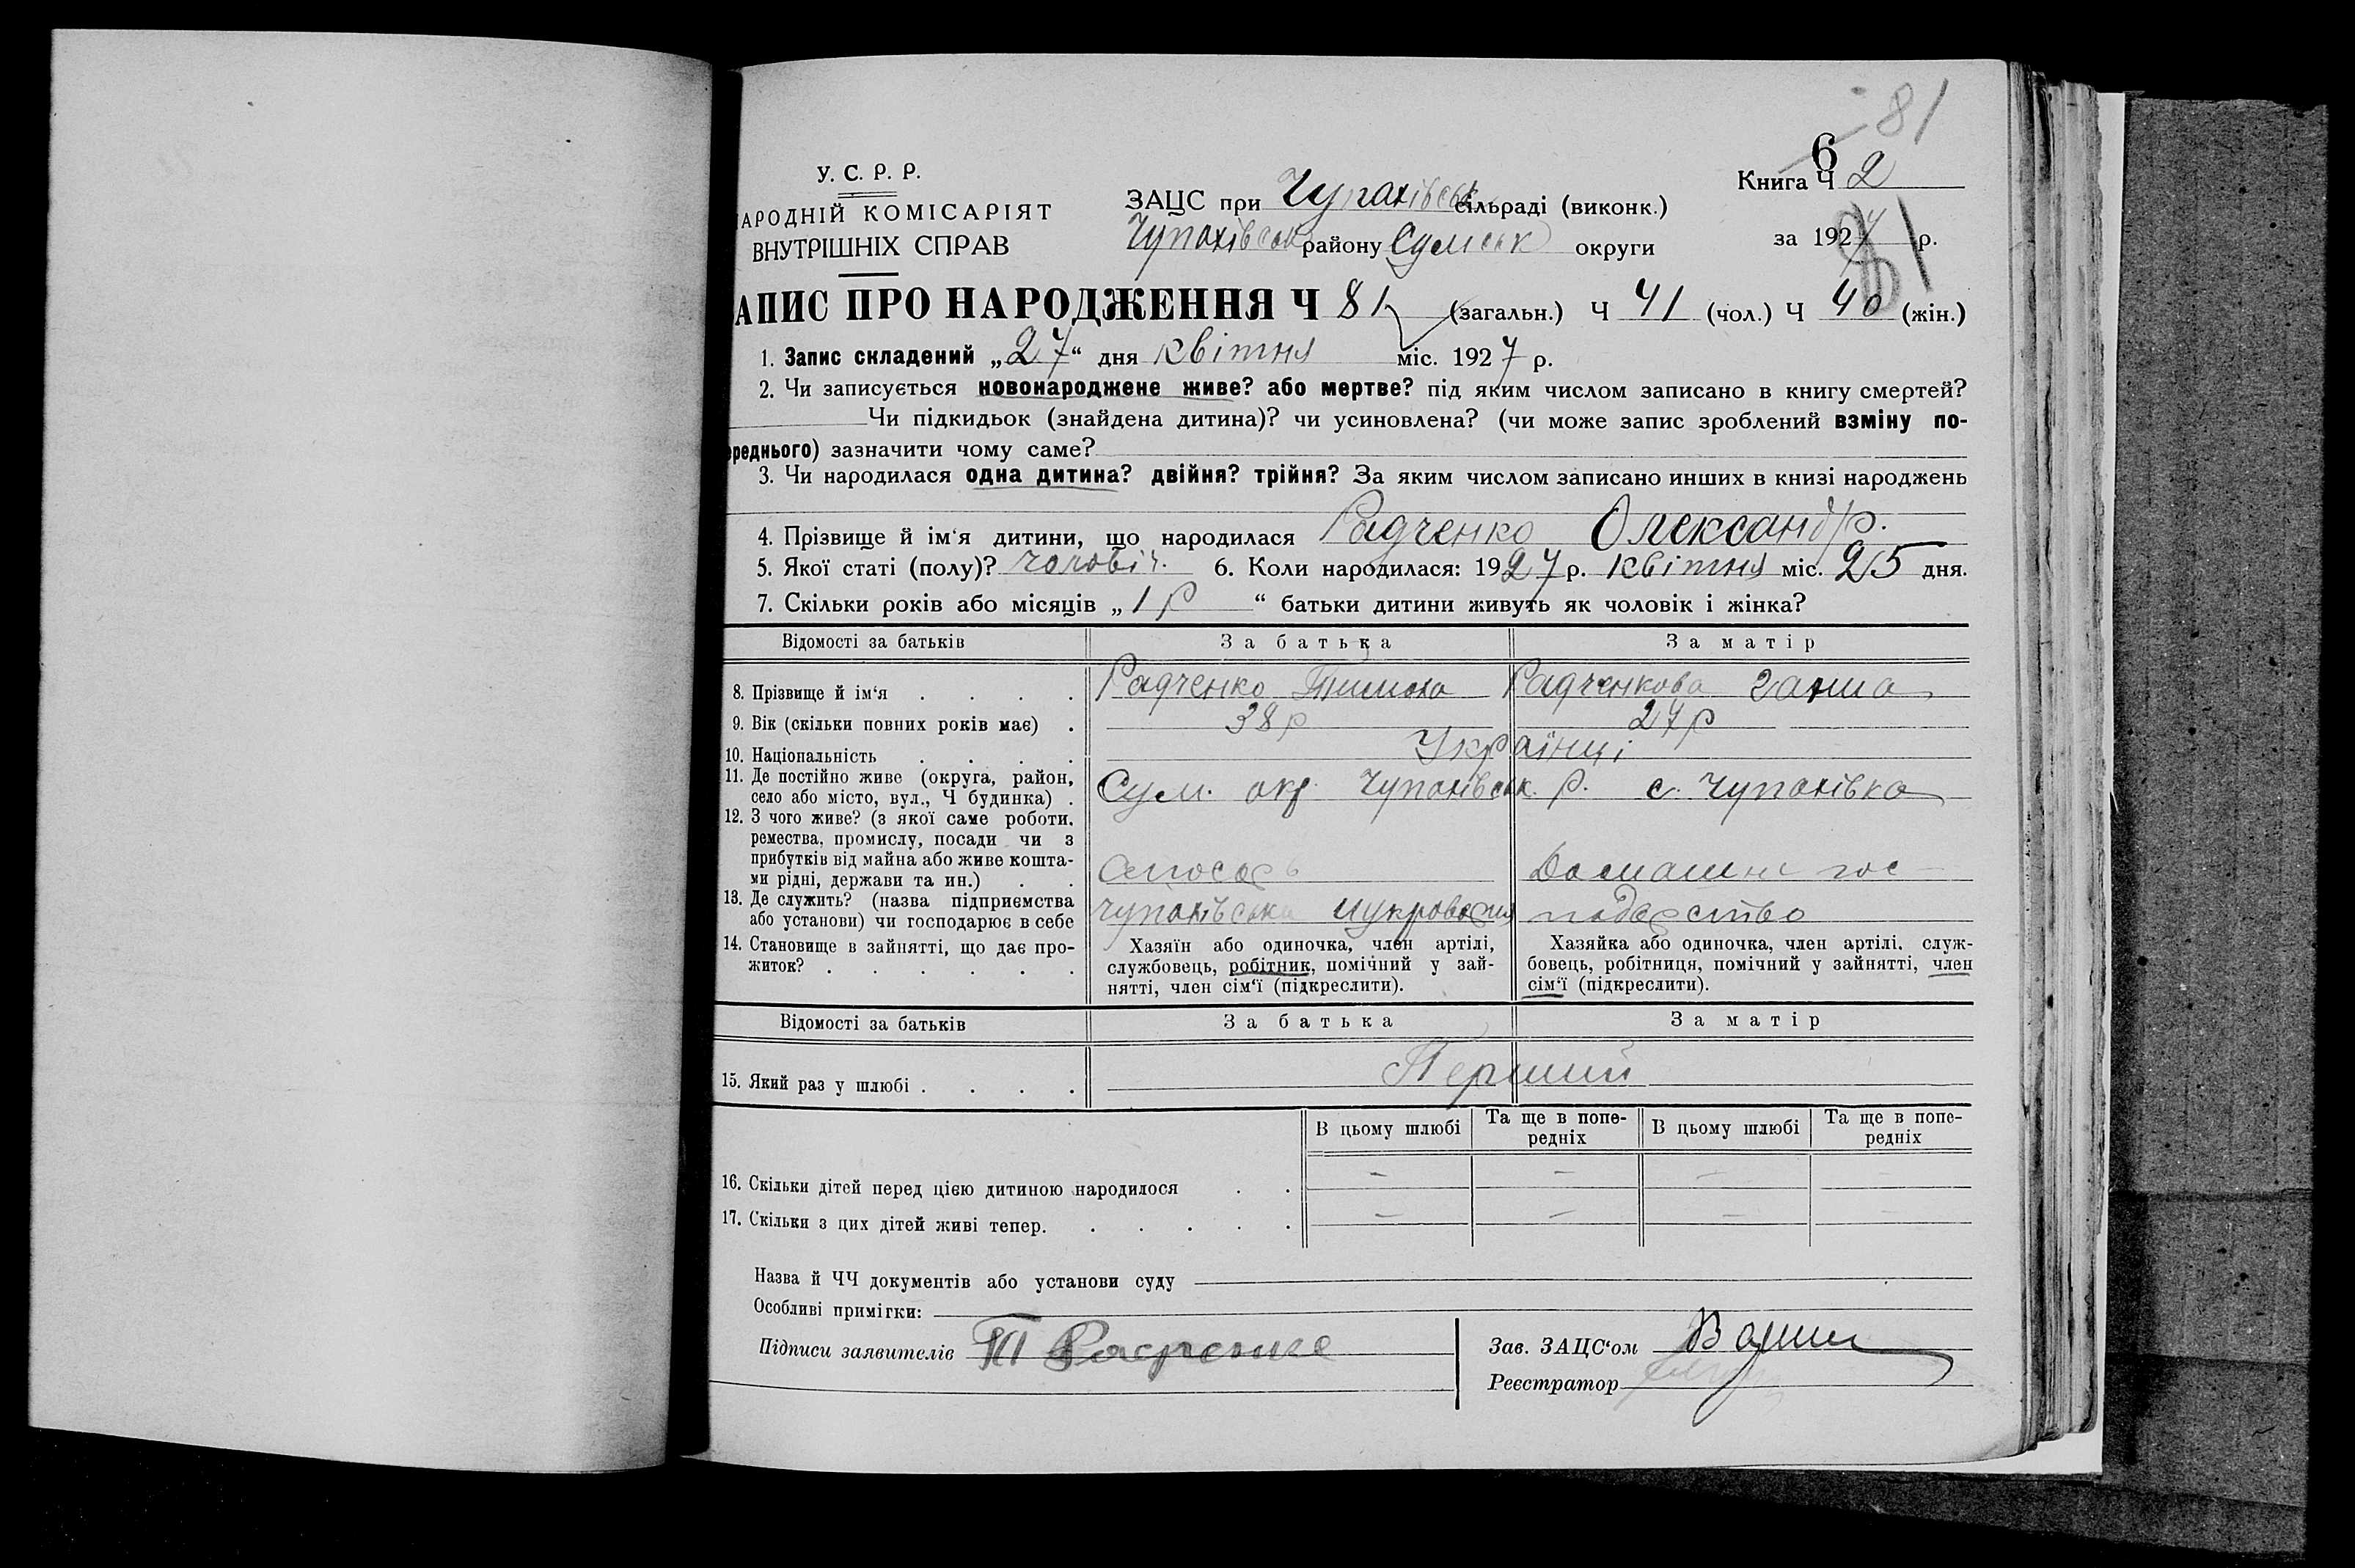 81
6
У. С. Р. Р.
Книга Ч 2
АРОДНІЙ КОМІСАРІЯТ
ВНУТРІШНІХ СПРАВ
ЗАЦС при Чупахівськ сільраді (виконк.)
Чупахівськ району Сумськ округи
за 1927 р.
81
АПИС ПРО НАРОДЖЕННЯ Ч 81 (загальн.) Ч 41 (чол.) Ч 40 (жін.)
1. Запис складений „27“ дня квітня міс. 1927 р.
2. Чи записується новонароджене живе? або мертве? під яким числом записано в книгу смертей?
Чи підкидьок (знайдена дитина)? чи усиновлена? (чи може запис зроблений взміну по-
ереднього) зазначити чому саме?
3. Чи народилася одна дитина? двійня? трійня? За яким числом записано инших в книзі народжень
4. Прізвище й ім‘я дитини, що народилася Радченко Олександр.
5. Якої статі (полу)? чоловіч. 6. Коли народилася: 1927 р. квітня міс. 25 дня.
7. Скільки років або місяців „1 р“ батьки дитини живуть як чоловік і жінка?
Відомості за батьків За батька За матір
8. Прізвище й ім‘я . . . . Радченко Тимоха Радченкова Ганна
9. Вік (скільки повних років має) . 38 р 27 р
10. Національність . . . . Українці
11. Де постійно живе (округа, район,
село або місто, вул., Ч будинка) . Сум. окр. Чупахівськ. р. с. Чупахівка
12. З чого живе? (з якої саме роботи,
ремества, промислу, посади чи з
прибутків від майна або живе кошта-
ми рідні, держави та ин.) . . слюсарь Домашнє гос-
13. Де служить? (назва підприємства
або установи) чи господарює в себе Чупахівська цукроварня подарство
14. Становище в зайнятті, що дає про-
житок? . . . . . .
Хазяїн або одиночка, член артілі,
службовець, робітник, помічний у зай-
нятті, член сім‘ї (підкреслити).
Хазяйка або одиночка, член артілі, служ-
бовець, робітниця, помічний у зайнятті, член
сім‘ї (підкреслити).
Відомості за батьків За батька За матір
15. Який раз у шлюбі . . . . Перший
В цьому шлюбі Та ще в попе-
редніх В цьому шлюбі Та ще в попе-
редніх
16. Скільки дітей перед цією дитиною народилося . . — — —
17. Скільки з цих дітей живі тепер. . . . . . — — — —
Назва й ЧЧ документів або установи суду
Особливі примітки:
Підписи заявителів Т Радченко
Зав. ЗАЦС‘ом
Реєстратор